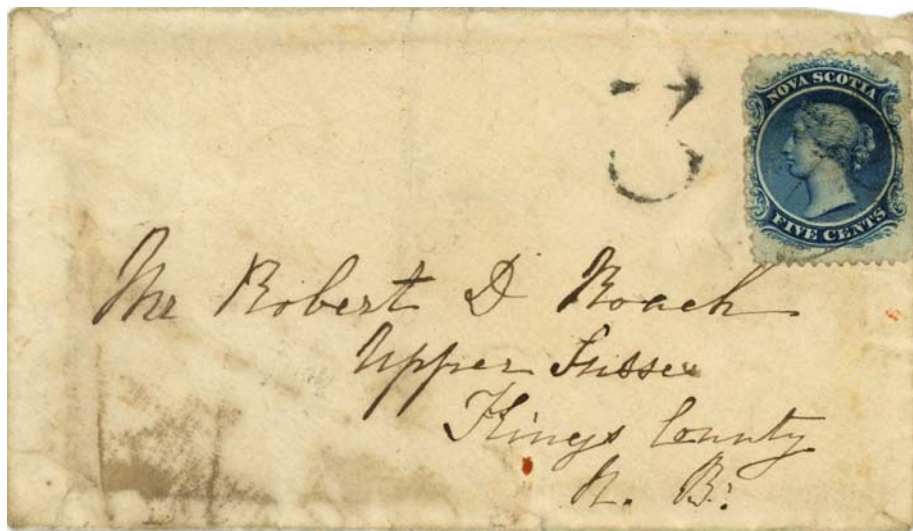 NOVA SCOTIA
FIVE CENTS
5
Mr Robert D Roach
Upper Sussex
Kings County
N. B.